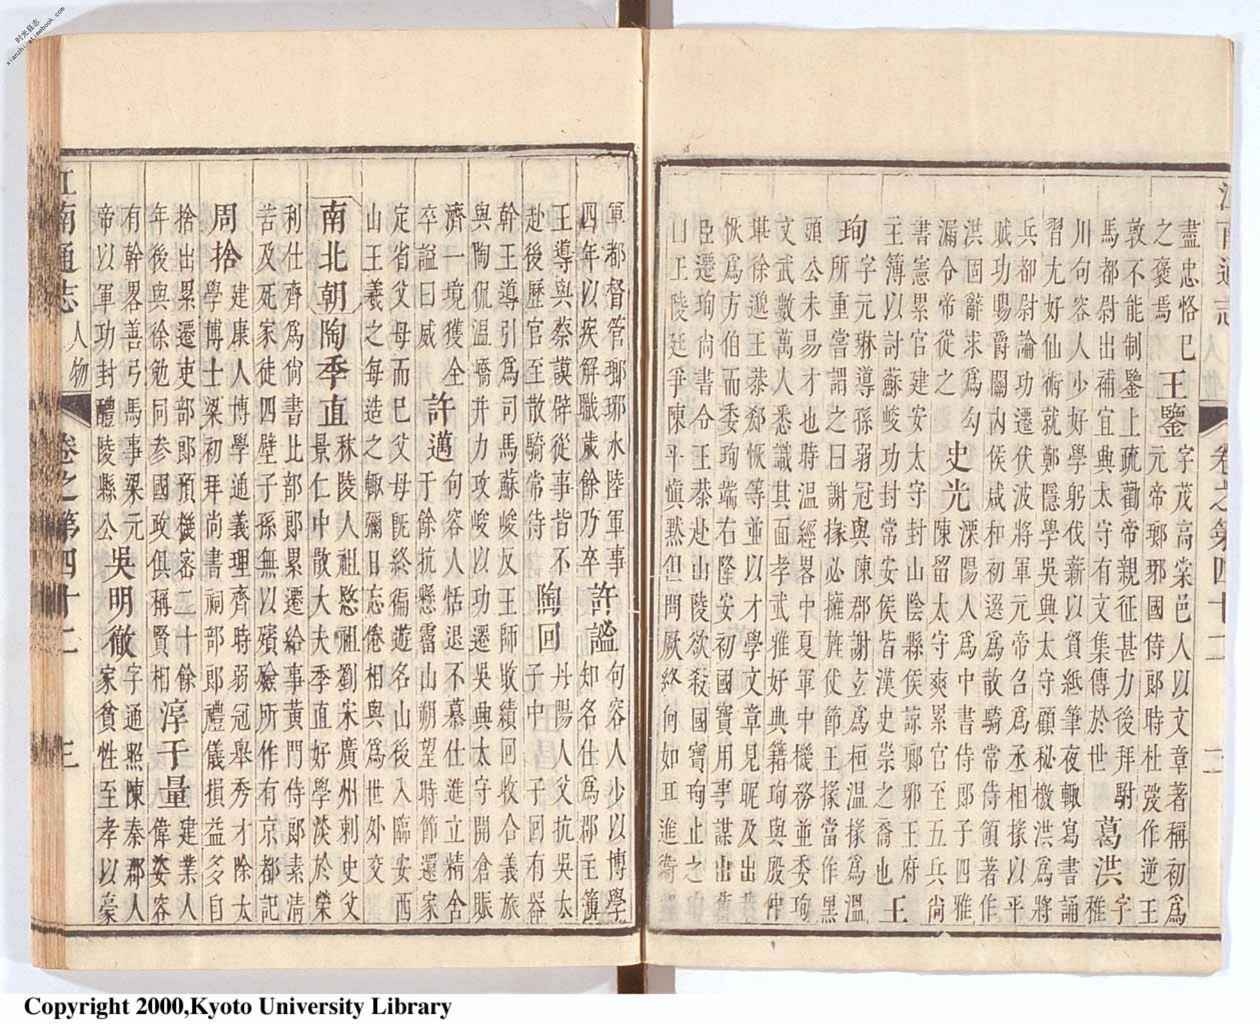 江南通志 人物 卷之第四十二 二
盡忠恪巳
之褒焉
王鑒
字茂高棠邑人以文章著稱初爲
元帝瑯琊國侍郎時杜弢作逆王
敦不能制鑒上疏勸帝親征甚力後拜駙
馬都尉出補宜典太守有文集傳於世
葛洪
字
稚
川句容人少好學躬伐薪以貿紙筆夜輙寫書誦
習尤好仙術就鄭隱學吳興太守顧秘檄洪爲將
兵都尉論功遷伏波將軍元帝召爲丞相掾以平
賊功賜爵關內侯咸和初選爲散騎常侍領著作
洪固辭求爲勾
漏令帝從之
史光
溧陽人爲中書侍郎子四雅
陳留太守爽累官至五兵尚
書憲累官建安太守封山陰縣侯諒鄔邪王府
主簿以討蘇峻功封常安侯皆漢史崇之喬也
王
珣
字元琳導孫弱冠與陳郡謝玄爲桓溫掾爲溫
所重嘗謂之曰謝掾必擁旄伏節王掾當作黑
頭公未易才也時溫經畧中夏軍中機務並委珣
文武數萬人悉識其面孝武雅好典籍珣與殷仲
堪徐邈王恭郄恢等並以才學文章見昵及出恭
恢爲方伯而委珣端右隆安初國寶用事謀出舊
臣遷珣尚書令王恭赴山陵欲殺國寶珣止之
曰王陵廷爭陳平愼黙但問厥終何如耳進衛
軍都督管瑯琊水陸軍事
四年以疾解職歲餘乃卒
許謐
句容人少以博學
知名仕爲郡主簿
王導與蔡謨辟從事皆不
赴後歷官至散騎常侍
陶回
丹陽人父抗吳太
子中子子回有器
幹王導引爲司馬蘇峻反王師敗績回收合義旅
與陶侃溫嶠并力攻峻以功遷吳典太守開倉賑
濟一境獲全
卒謚曰威
許邁
句容人恬退不慕仕進立精舍
于餘抗懸霤山朔望時節還家
定省父母而巳父母旣終徧遊名山後入臨安西
山王羲之每造之輙彌日忘倦相與爲世外交
南北朝
陶季直
秣陵人祖愍祖劉宋廣州刺史父
景仁中散大夫季直好學淡於榮
利仕齊爲尚書比部郎累遷給事黃門侍郎素清
苦及死家徒四壁子孫無以殯殮所作有京都記
周捨
建康人博學通義理齊時弱冠舉秀才除太
學博士梁初拜尚書祠部郎禮儀損益多自
捨出累遷吏部郎預機密二十餘
年後與徐勉同參國政俱稱賢相
淳于量
建業人
偉姿容
有幹畧善弓馬事梁元
帝以軍功封醴陵縣公
吳明徹
字通煕陳秦郡人
家貧性至孝以豪
江南通志 人物 卷之第四十二 三
Copyright 2000,Kyoto University Library